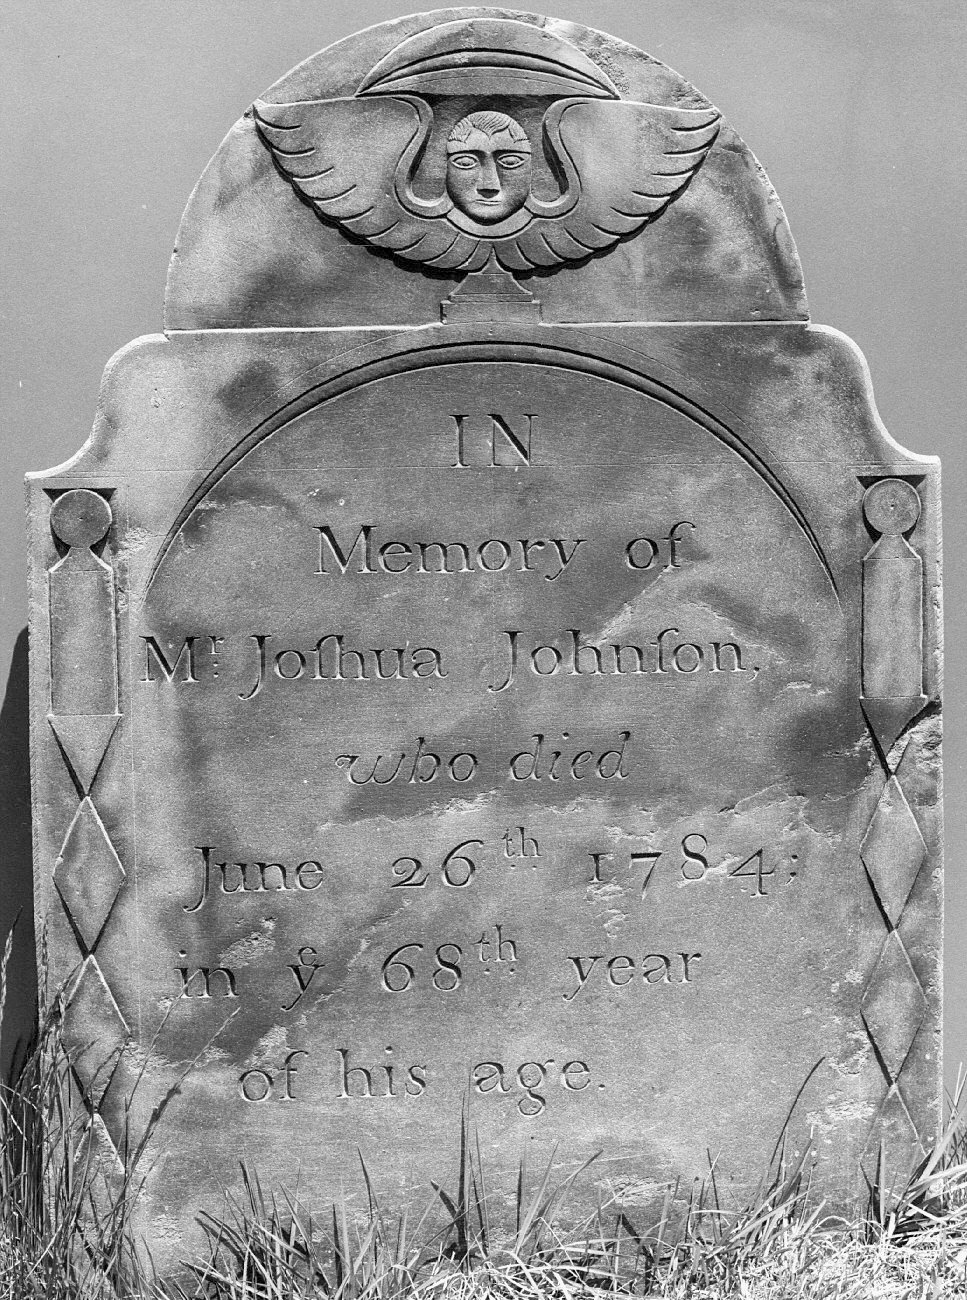 IN
Memory of
Mr. Joſhua Johnſon,
who died
June 26th 1784;
in ye 68th year
of his age.